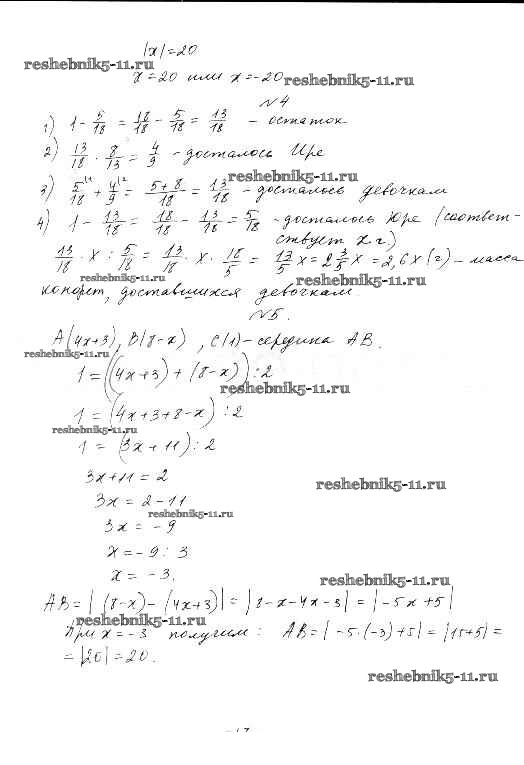 |x| = 20
reshebnik5-11.ru
x = 20 или x = -20 reshebnik5-11.ru
№4
1) 1 - 5/18 = 18/18 - 5/18 = 13/18 - остаток
2) 13/18 · 8/13 = 4/9 - досталось Ире
reshebnik5-11.ru
3) 5/18 + 4/9 = (5+8)/18 = 13/18 - досталось девочкам
4) 1 - 13/18 = 18/18 - 13/18 = 5/18 - досталось Юре (соответ-
ствует x г)
13/18 · x : 5/18 = 13/18 · x · 18/5 = 13/5 x = 2 3/5 x = 2,6x (г) - масса
reshebnik5-11.ru reshebnik5-11.ru
конфет, доставшихся девочкам.
№5.
A(4x+3), B(8-x), C(1) - середина AB.
reshebnik5-11.ru
1 = ((4x+3) + (8-x)) : 2
reshebnik5-11.ru
1 = (4x+3+8-x) : 2
reshebnik5-11.ru
1 = (3x+11) : 2
3x+11 = 2
reshebnik5-11.ru
3x = 2-11
reshebnik5-11.ru
3x = -9
x = -9 : 3
x = -3.
reshebnik5-11.ru
AB = |(8-x) - (4x+3)| = |8-x-4x-3| = |-5x+5|
reshebnik5-11.ru
При x = -3 получим: AB = |-5·(-3)+5| = |15+5| =
= |20| = 20.
reshebnik5-11.ru